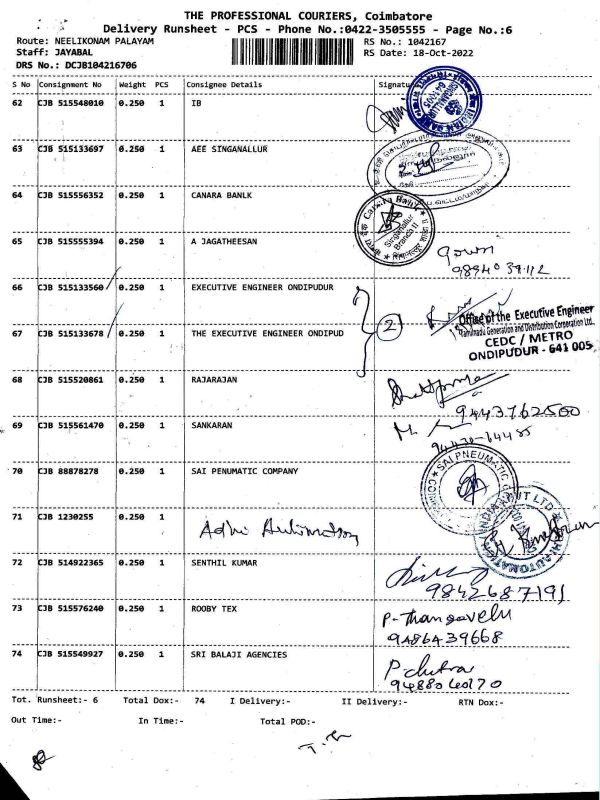 THE PROFESSIONAL COURIERS, Coimbatore
Delivery Runsheet - PCS - Phone No.:0422-3505555 - Page No.:6
Route: NEELIKONAM PALAYAM RS No.: 1042167
Staff: JAYABAL RS Date: 18-Oct-2022
DRS No.: DCJB104216706
S No Consignment No Weight PCS Consignee Details Signatu
62 CJB 515548010 0.250 1 IB
63 CJB 515133697 0.250 1 AEE SINGANALLUR
64 CJB 515556352 0.250 1 CANARA BANLK
Canara Bank
Singanallur
Branch II
65 CJB 515555394 0.250 1 A JAGATHEESAN
66 CJB 515133560 0.250 1 EXECUTIVE ENGINEER ONDIPUDUR
2
Office of the Executive Engineer
Tamilnadu Generation and Distribution Corporation Ltd.,
CEDC / METRO
ONDIPUDUR - 641 005
67 CJB 515133678 0.250 1 THE EXECUTIVE ENGINEER ONDIPUD
68 CJB 515520861 0.250 1 RAJARAJAN
9443762500
69 CJB 515561470 0.250 1 SANKARAN
70 CJB 88878278 0.250 1 SAI PENUMATIC COMPANY
SAI PNEUMATIC
71 CJB 1230255 0.250 1 Adhi Automation
72 CJB 514922365 0.250 1 SENTHIL KUMAR
9842687191
73 CJB 515576240 0.250 1 ROOBY TEX
P. Thangavelu
9486439668
74 CJB 515549927 0.250 1 SRI BALAJI AGENCIES
P. chitra
9488040170
Tot. Runsheet:- 6 Total Dox:- 74 I Delivery:- II Delivery:- RTN Dox:-
Out Time:- In Time:- Total POD:-